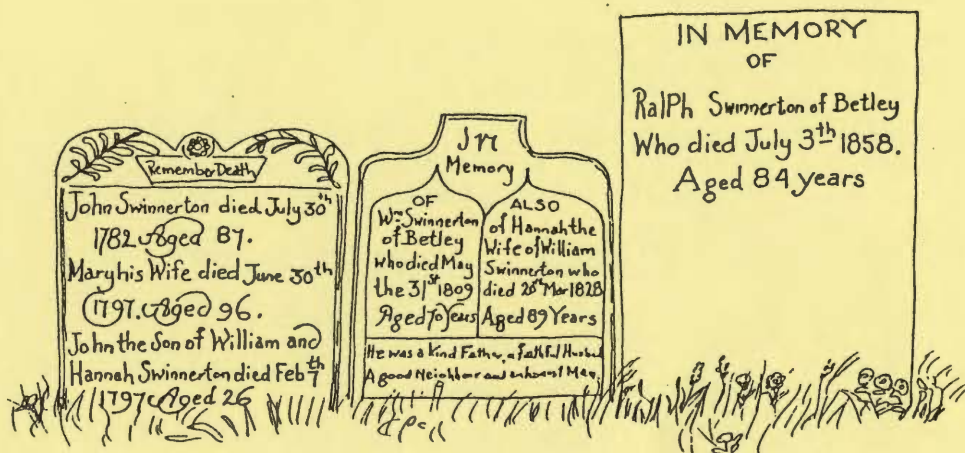 Remember Death
John Swinnerton died July 30th
1782 Aged 87.
Mary his Wife died June 30th
1797. Aged 96.
John the Son of William and
Hannah Swinnerton died Feb 7th
1797 Aged 26
In
Memory
OF
Wm Swinnerton
of Betley
who died May
the 31st 1809
Aged 70 Years
ALSO
of Hannah the
Wife of William
Swinnerton who
died 20th Mar 1828
Aged 89 Years
He was a kind Father, a faithful Husband
A good Neighbour and an honest Man
IN MEMORY
OF
Ralph Swinnerton of Betley
Who died July 3th 1858.
Aged 84 years